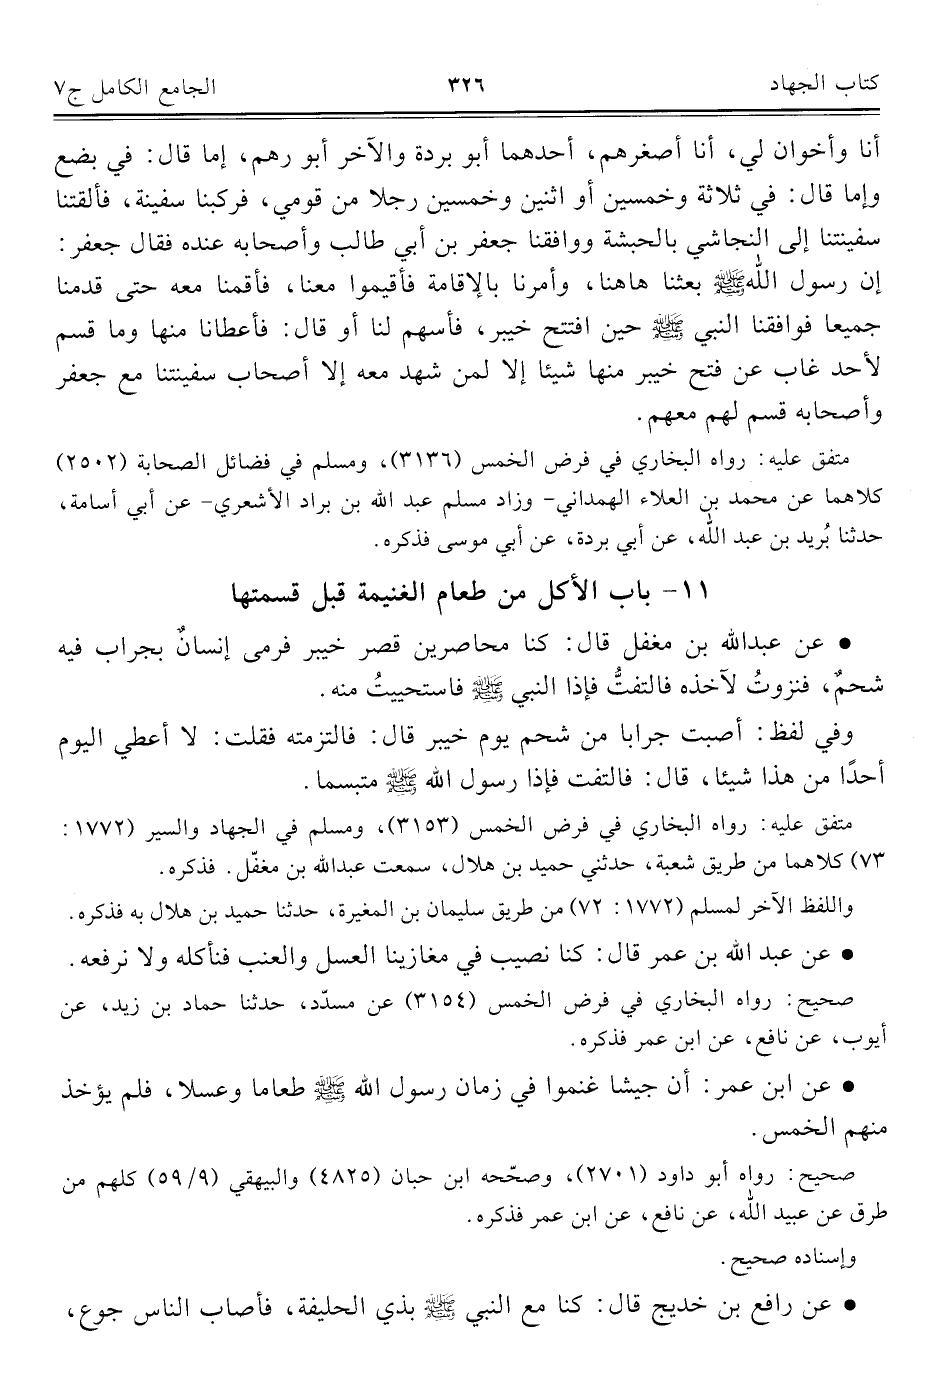 كتاب الجهاد ٣٢٦ الجامع الكامل ج٧
أنا وأخوان لي، أنا أصغرهم، أحدهما أبو بردة والآخر أبو رهم، إما قال: في بضع
وإما قال: في ثلاثة وخمسين أو اثنين وخمسين رجلا من قومي، فركبنا سفينة، فألقتنا
سفينتنا إلى النجاشي بالحبشة ووافقنا جعفر بن أبي طالب وأصحابه عنده فقال جعفر:
إن رسول الله ﷺ بعثنا هاهنا، وأمرنا بالإقامة فأقيموا معنا، فأقمنا معه حتى قدمنا
جميعا فوافقنا النبي ﷺ حين افتتح خيبر، فأسهم لنا أو قال: فأعطانا منها وما قسم
لأحد غاب عن فتح خيبر منها شيئا إلا لمن شهد معه إلا أصحاب سفينتنا مع جعفر
وأصحابه قسم لهم معهم.
متفق عليه: رواه البخاري في فرض الخمس (٣١٣٦)، ومسلم في فضائل الصحابة (٢٥٠٢)
كلاهما عن محمد بن العلاء الهمداني- وزاد مسلم عبد الله بن براد الأشعري- عن أبي أسامة،
حدثنا بُريد بن عبد الله، عن أبي بردة، عن أبي موسى فذكره.
١١- باب الأكل من طعام الغنيمة قبل قسمتها
• عن عبدالله بن مغفل قال: كنا محاصرين قصر خيبر فرمى إنسانٌ بجراب فيه
شحمٌ، فنزوتُ لآخذه فالتفتُّ فإذا النبي ﷺ فاستحييتُ منه.
وفي لفظ: أصبت جرابا من شحم يوم خيبر قال: فالتزمته فقلت: لا أعطي اليوم
أحدًا من هذا شيئا، قال: فالتفت فإذا رسول الله ﷺ متبسما.
متفق عليه: رواه البخاري في فرض الخمس (٣١٥٣)، ومسلم في الجهاد والسير (١٧٧٢:
٧٣) كلاهما من طريق شعبة، حدثني حميد بن هلال، سمعت عبدالله بن مغفّل. فذكره.
واللفظ الآخر لمسلم (١٧٧٢: ٧٢) من طريق سليمان بن المغيرة، حدثنا حميد بن هلال به فذكره.
• عن عبد الله بن عمر قال: كنا نصيب في مغازينا العسل والعنب فنأكله ولا نرفعه.
صحيح: رواه البخاري في فرض الخمس (٣١٥٤) عن مسدّد، حدثنا حماد بن زيد، عن
أيوب، عن نافع، عن ابن عمر فذكره.
• عن ابن عمر: أن جيشا غنموا في زمان رسول الله ﷺ طعاما وعسلا، فلم يؤخذ
منهم الخمس.
صحيح: رواه أبو داود (٢٧٠١)، وصحّحه ابن حبان (٤٨٢٥) والبيهقي (٥٩/٩) كلهم من
طرق عن عبيد الله، عن نافع، عن ابن عمر فذكره.
وإسناده صحيح.
• عن رافع بن خديج قال: كنا مع النبي ﷺ بذي الحليفة، فأصاب الناس جوع،